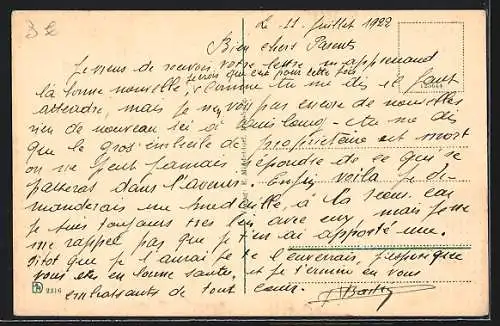 Le 11 Juillet 1922
Bien chers Parents
Je viens de recevoir votre lettre en apprenand
la bonne nouvelle, comme tu me dis il faut
attendre, mais je n'en pas encore de nouvelles
rien de nouveau, ici à tu me dis
que le gros de propriétaire est mort
on ne peut jamais répondre de ce qui se
passeras dans l'avenir. Enfin voila je de-
manderais une medaille, à la
je suis toujours tres bien avec eux, mais je ne
me rappel pas que je t'en ai apporté une.
sitot que je l'aurai je te l'enverrais,
vous etes en bonne sante, et je termine en vous
embrassants de tout coeur.
2316